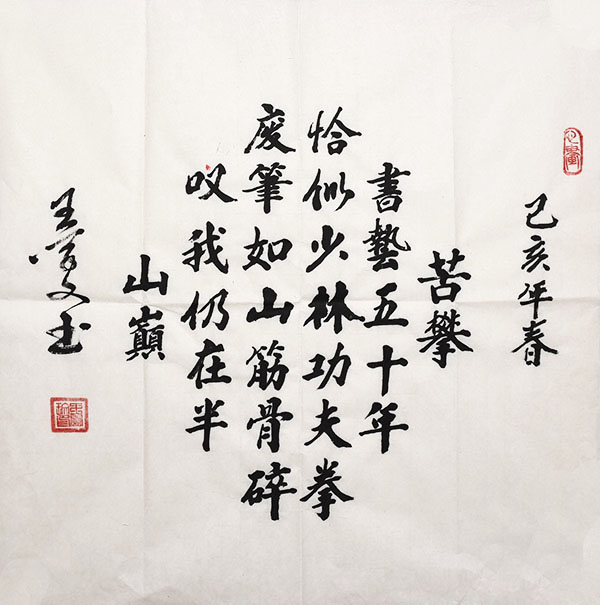 己亥年春
苦攀
書藝五十年
恰似少林功夫拳
廢筆如山筋骨碎
叹我仍在半
山巔